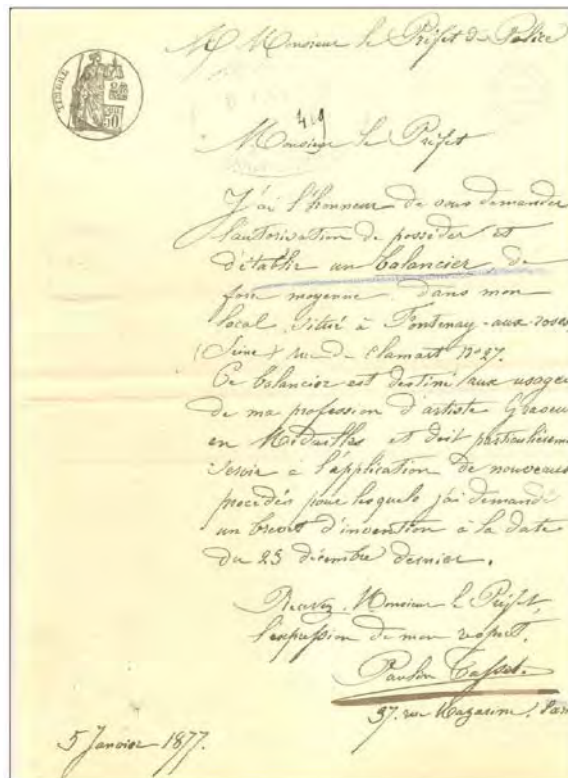 TIMBRE
50
M Monsieur le Préfet de Police
419
Monsieur le Préfet
J'ai l'honneur de vous demander
l'autorisation de posséder et
d'établir un balancier de
force moyenne dans mon
local situé à Fontenay-aux-roses
(Seine) rue de Clamart N° 27.
Ce balancier est destiné aux usages
de ma profession d'artiste Graveur
en Médailles et doit particulièreme
servir à l'application de nouveaux
procédés pour lesquels j'ai demandé
un brevet d'invention à la date
du 23 décembre dernier.
Recevez, Monsieur le Préfet,
l'expression de mon respect.
Paulin Tasset.
37. rue Mazarine. Paris
5 Janvier 1877.